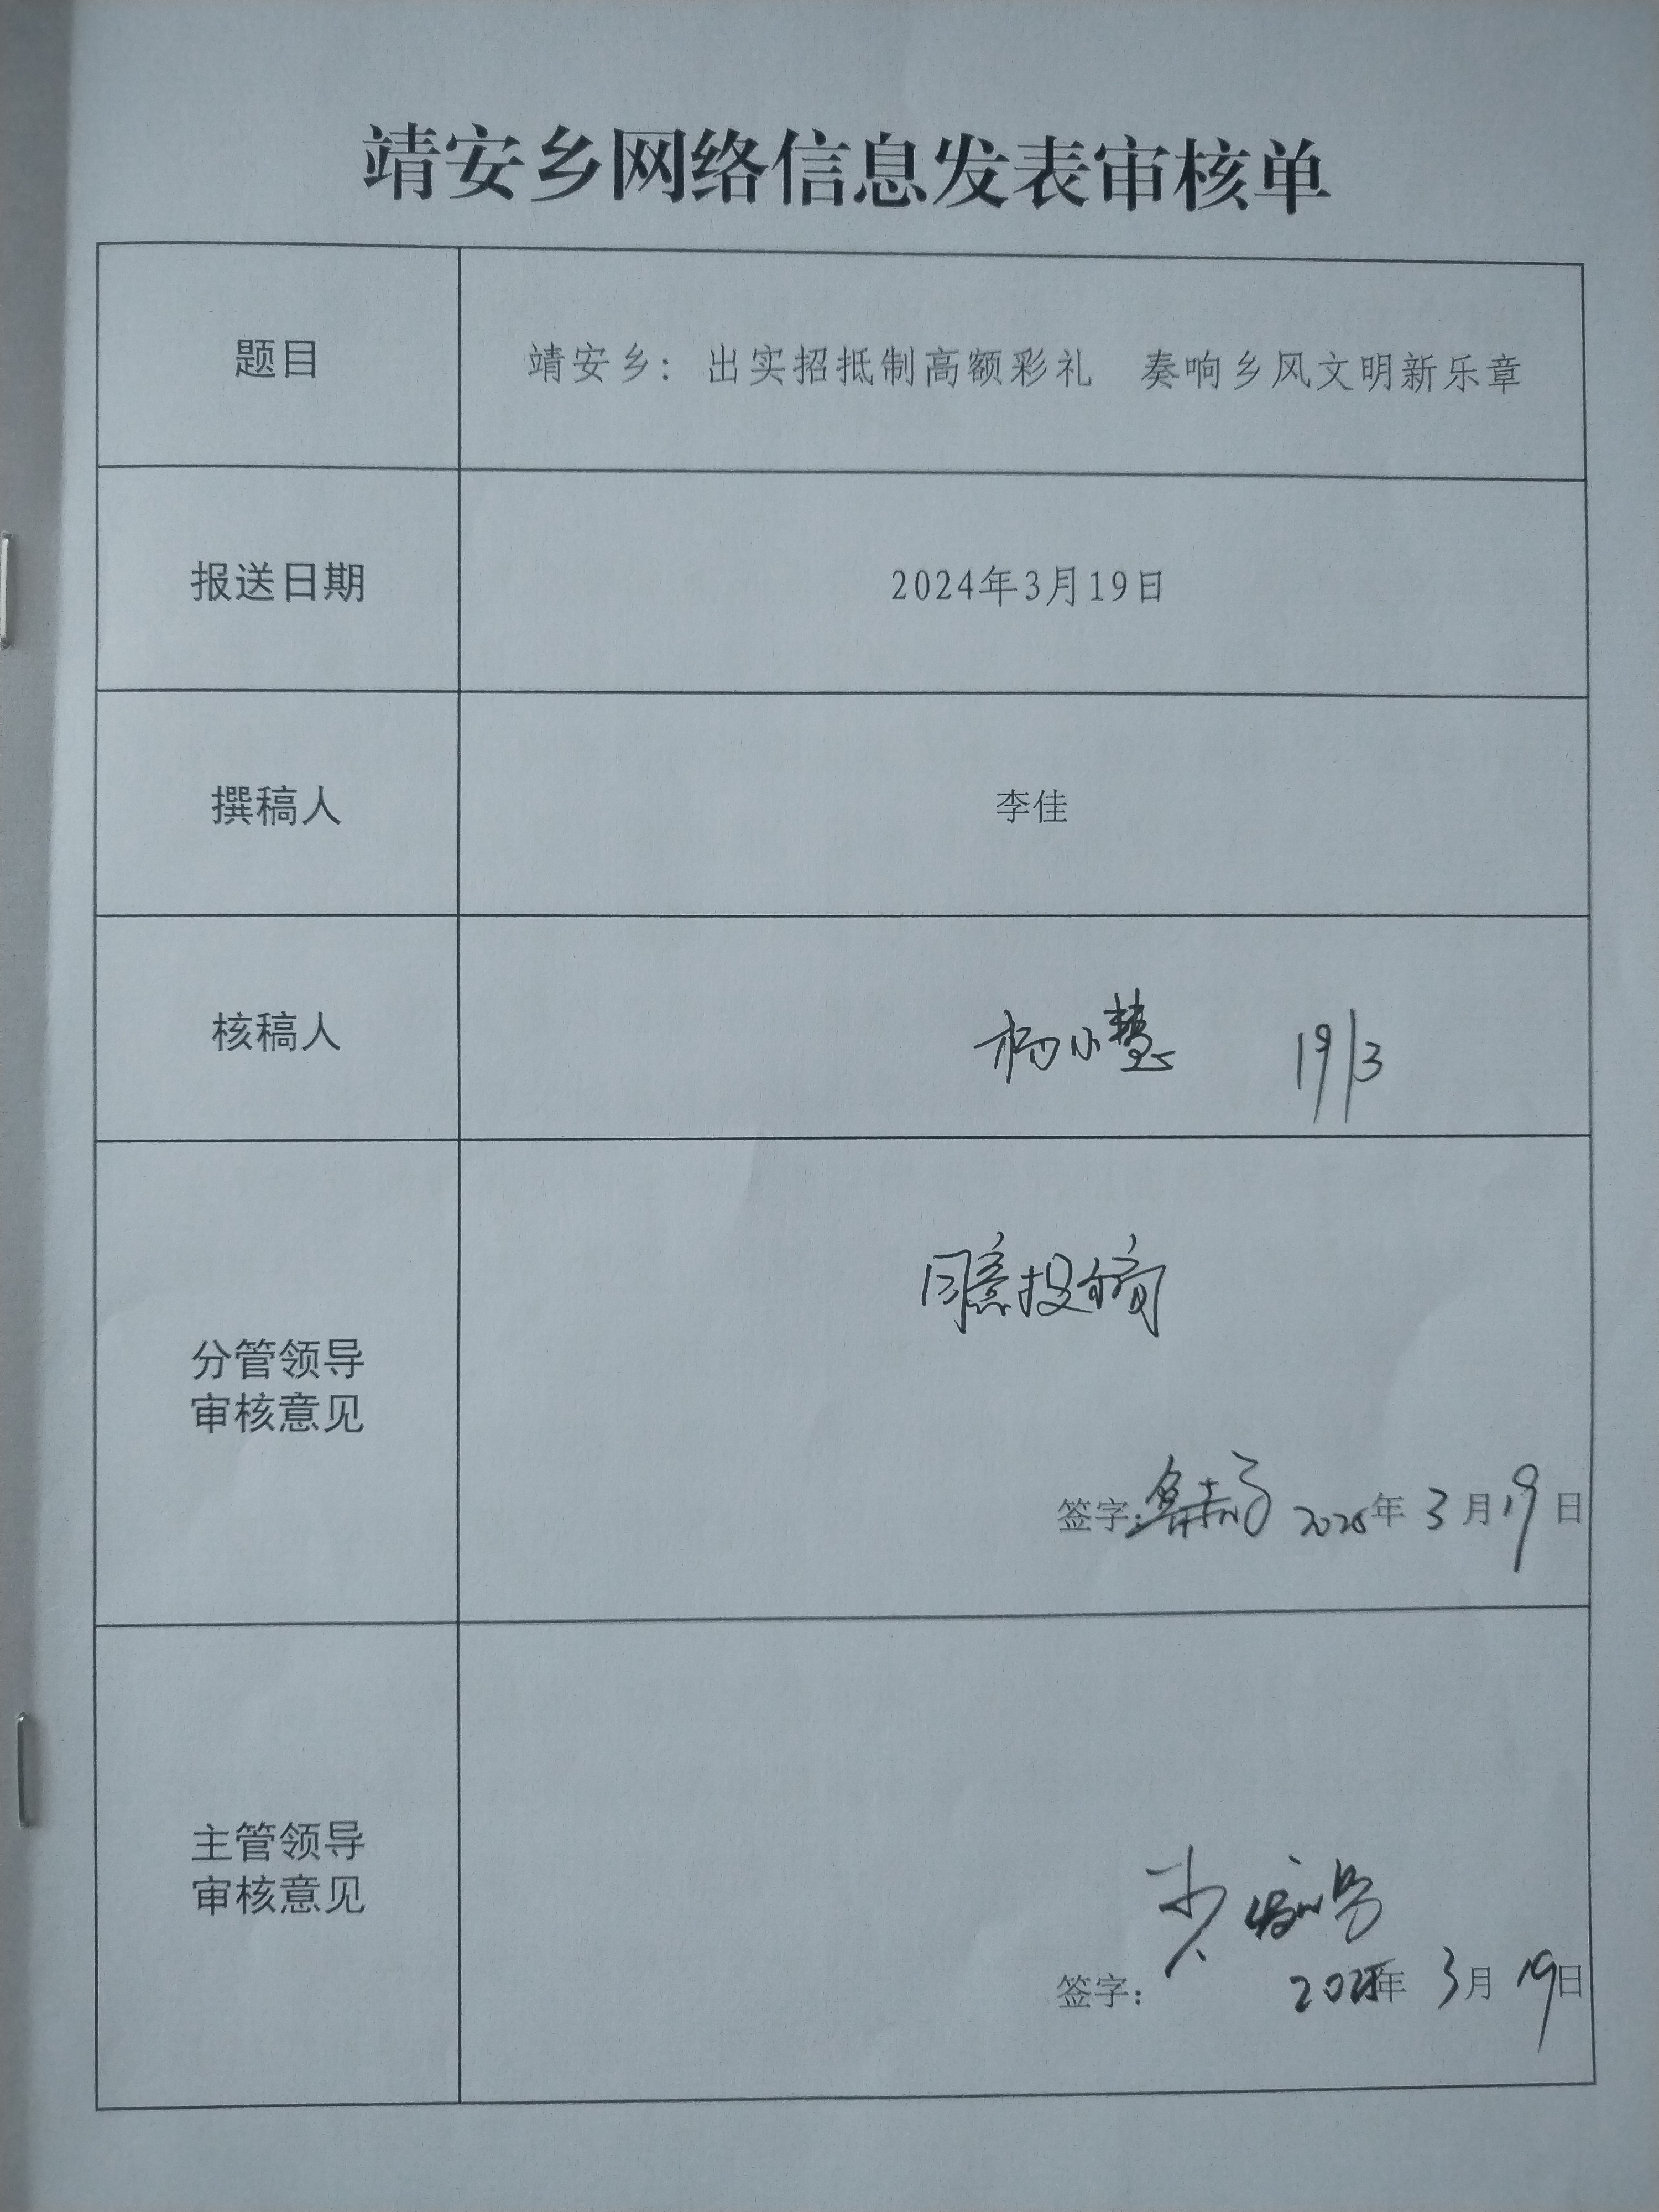 靖安乡网络信息发表审核单
题目
靖安乡：出实招抵制高额彩礼　奏响乡风文明新乐章
报送日期
2024年3月19日
撰稿人
李佳
核稿人
杨小慧 19/3
分管领导
审核意见
同意投稿
签字： 2025年 3月19日
主管领导
审核意见
签字： 2025年 3月19日